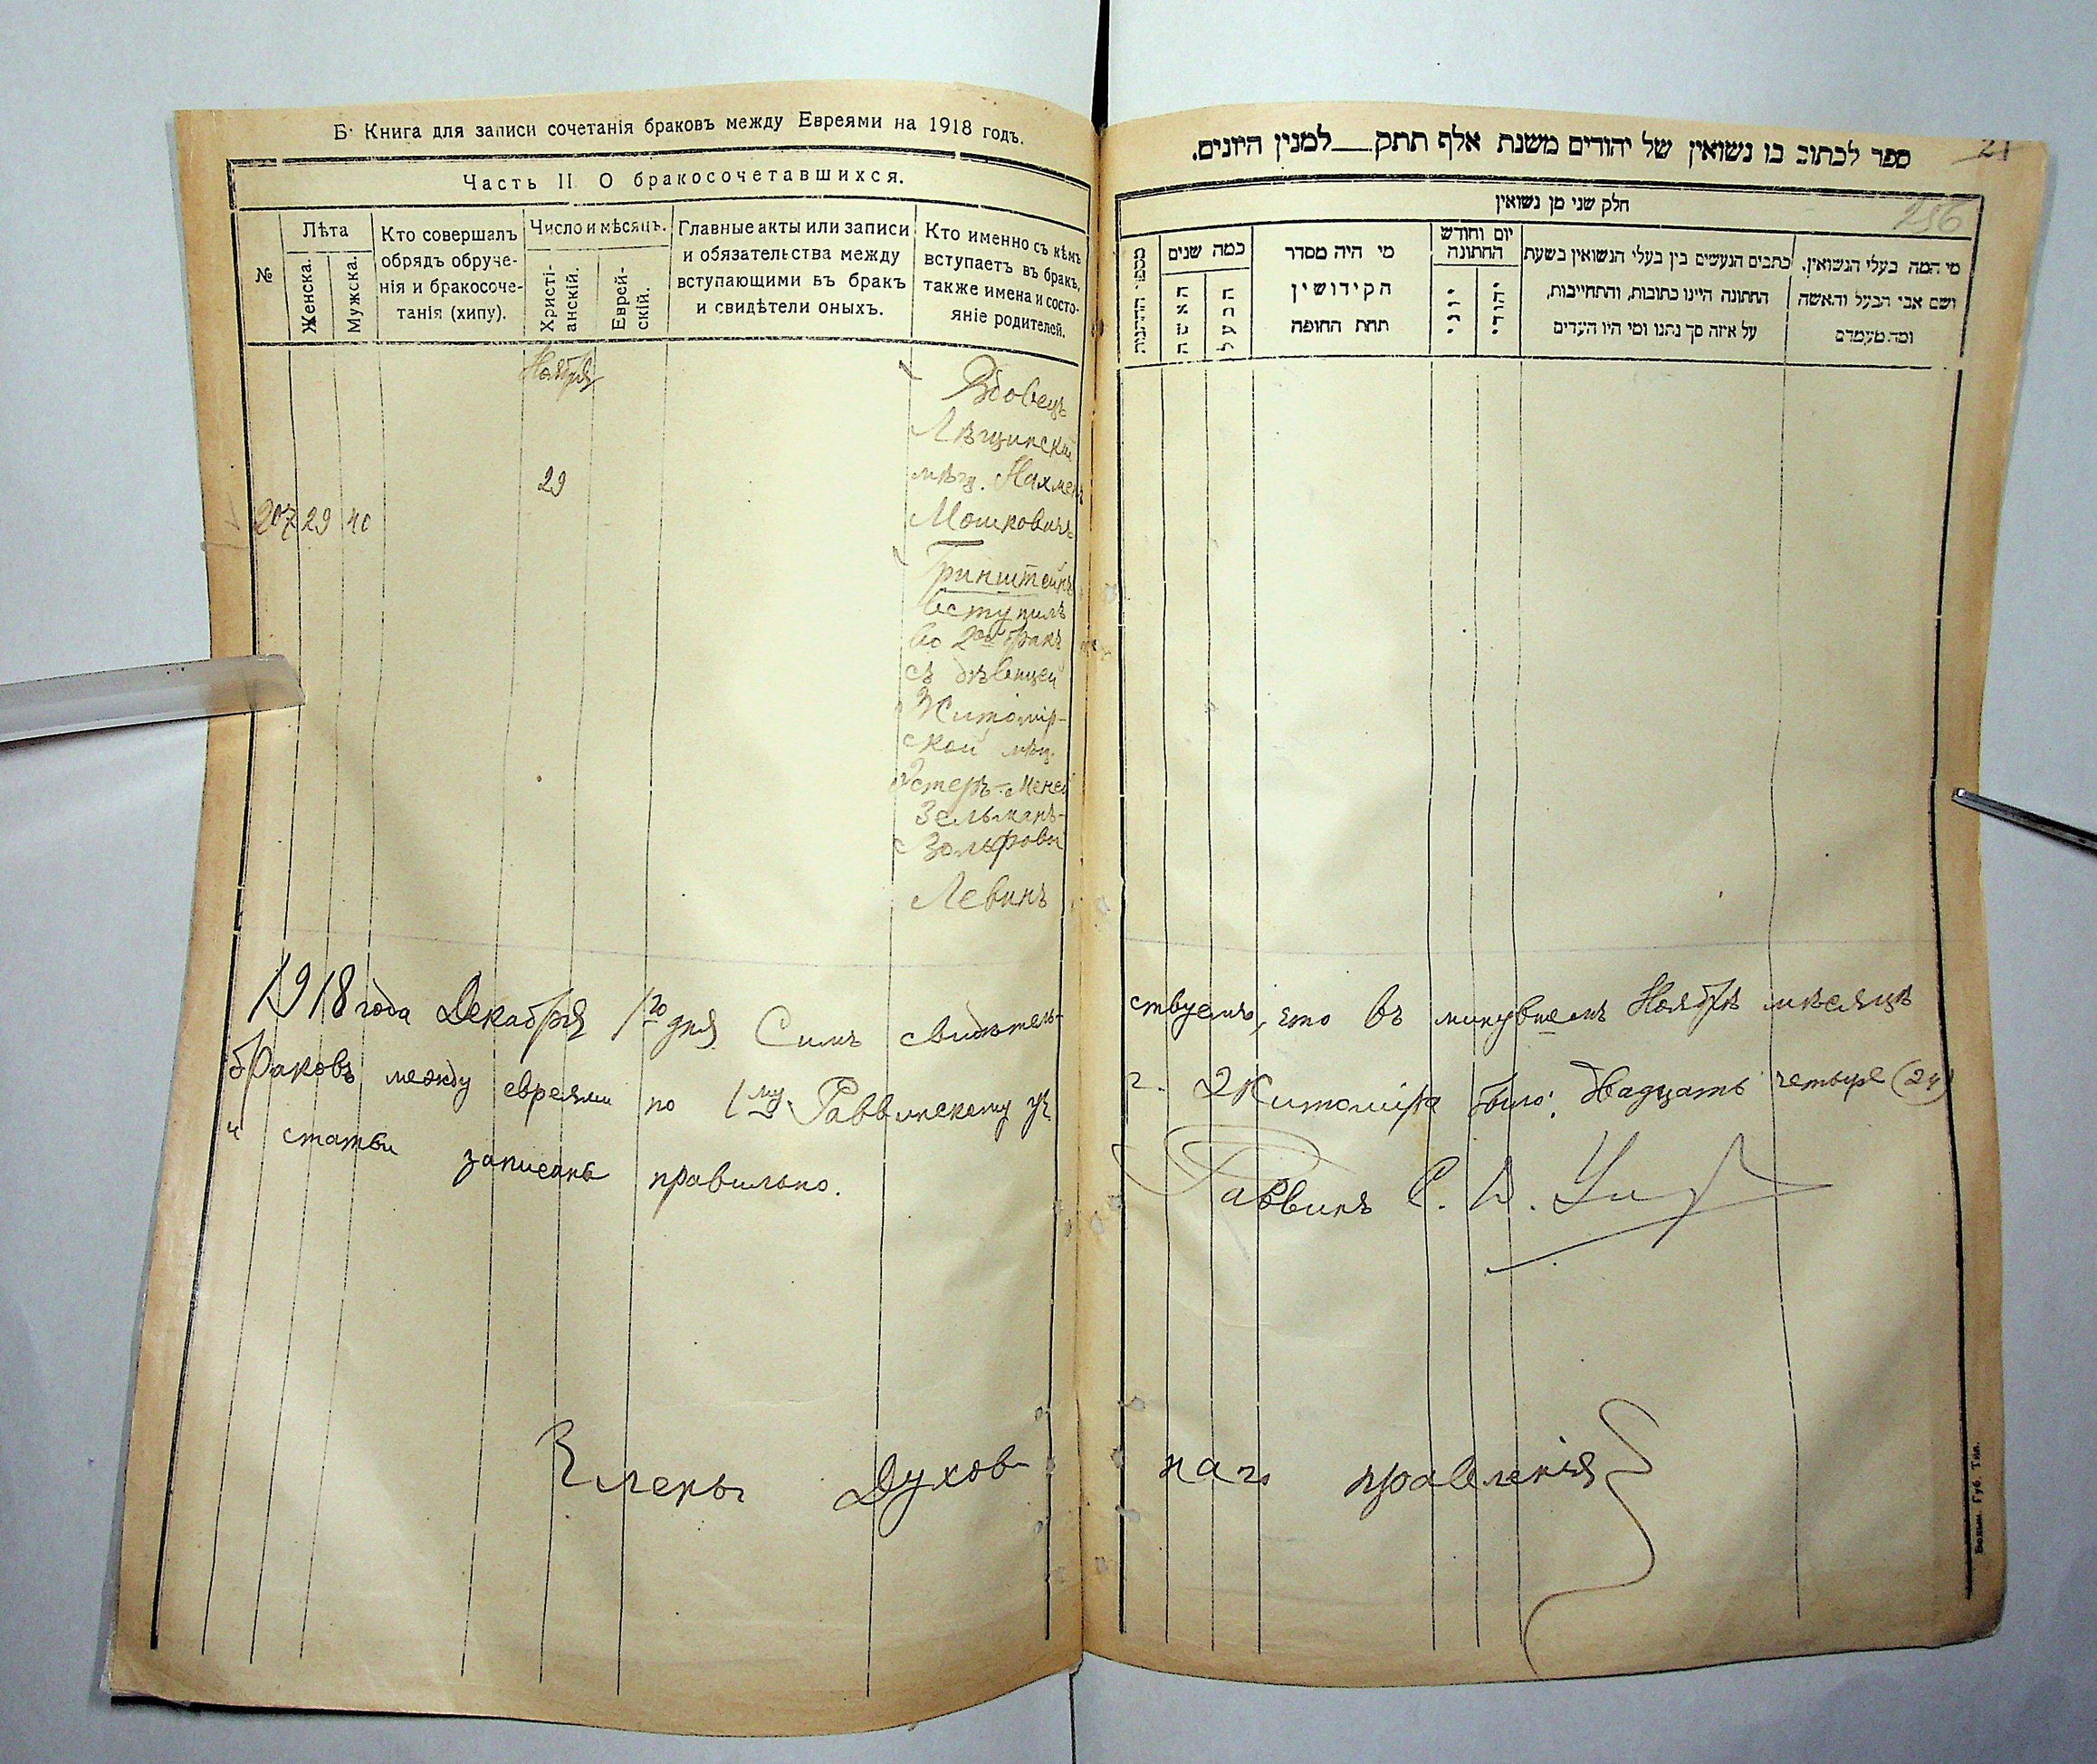 Б. Книга для записи сочетанія браковъ между Евреями на 1918 годъ.
Часть II О бракосочетавшихся.
№
Лѣта
Женска.
Мужска.
Кто совершалъ
обрядъ обруче-
нія и бракосоче-
танія (хипу).
Число и мѣсяцъ.
Христі-
анскій.
Еврей-
скій.
Главные акты или записи
и обязательства между
вступающими въ бракъ
и свидѣтели оныхъ.
Кто именно съ кѣмъ
вступаетъ въ бракъ,
также имена и состо-
яніе родителей.
Ноября
29
207 29 40
Вдовецъ
Лѣщинскій
мѣщ. Нахмен
Мошковичъ
Гринштейнъ
вступилъ
во 2ой бракъ
съ дѣвицей
Житомір-
ской мѣщ.
Эстеръ-
Зельманъ-
Левинъ
ספר לכתוב בו נשואין של יהודים משנת אלף תתק__למנין היונים.
21
256
חלק שני מן נשואין
מספר החתונות
כמה שנים
האשה
הבעל
מי היה מסדר
הקידושין
תחת החופה
יום וחודש
החתונה
יוני
יהודי
כתבים הנעשים בין בעלי הנשואין בשעת
החתונה היינו כתובות, והתחייבות,
על איזה סך נתנו ומי היו העדים
מי המה בעלי הנשואין,
ושם אבי הבעל והאשה
ומה מעמדם
1918 года Декабря 1го дня Симъ свидѣтель-ствуемъ, что въ минувшемъ Ноябрѣ мѣсяцѣ
браковъ между евреями по 1му Раввинскому уч. г. Житоміра было: двадцать четыре (24)
и статьи записаны правильно.
Раввинъ С. В.
Члены Духов-наго правленія
Волын. Губ. Тип.